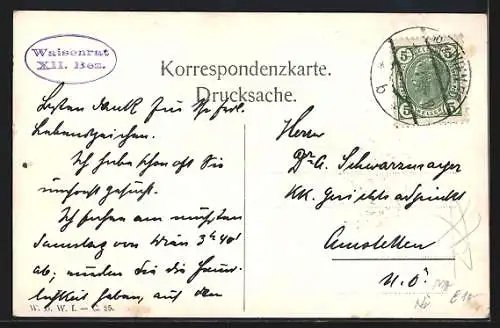 Waisenrat
XII. Bez.
Korrespondenzkarte.
Drucksache.
Besten Dank für Ihr frdl.
Lebenszeichen.
Ich habe schon oft Sie
umsonst gesucht.
Ich fahre am nächsten
Samstag von Wien 3h 40'
ab; würden Sie die Freund-
lichkeit haben, auf den
W. B. W. I. — C. 25.
Herrn
Dr. G. Schwarzmayer
KK. Gerichtsadjunkt
Amstetten
N. Ö.